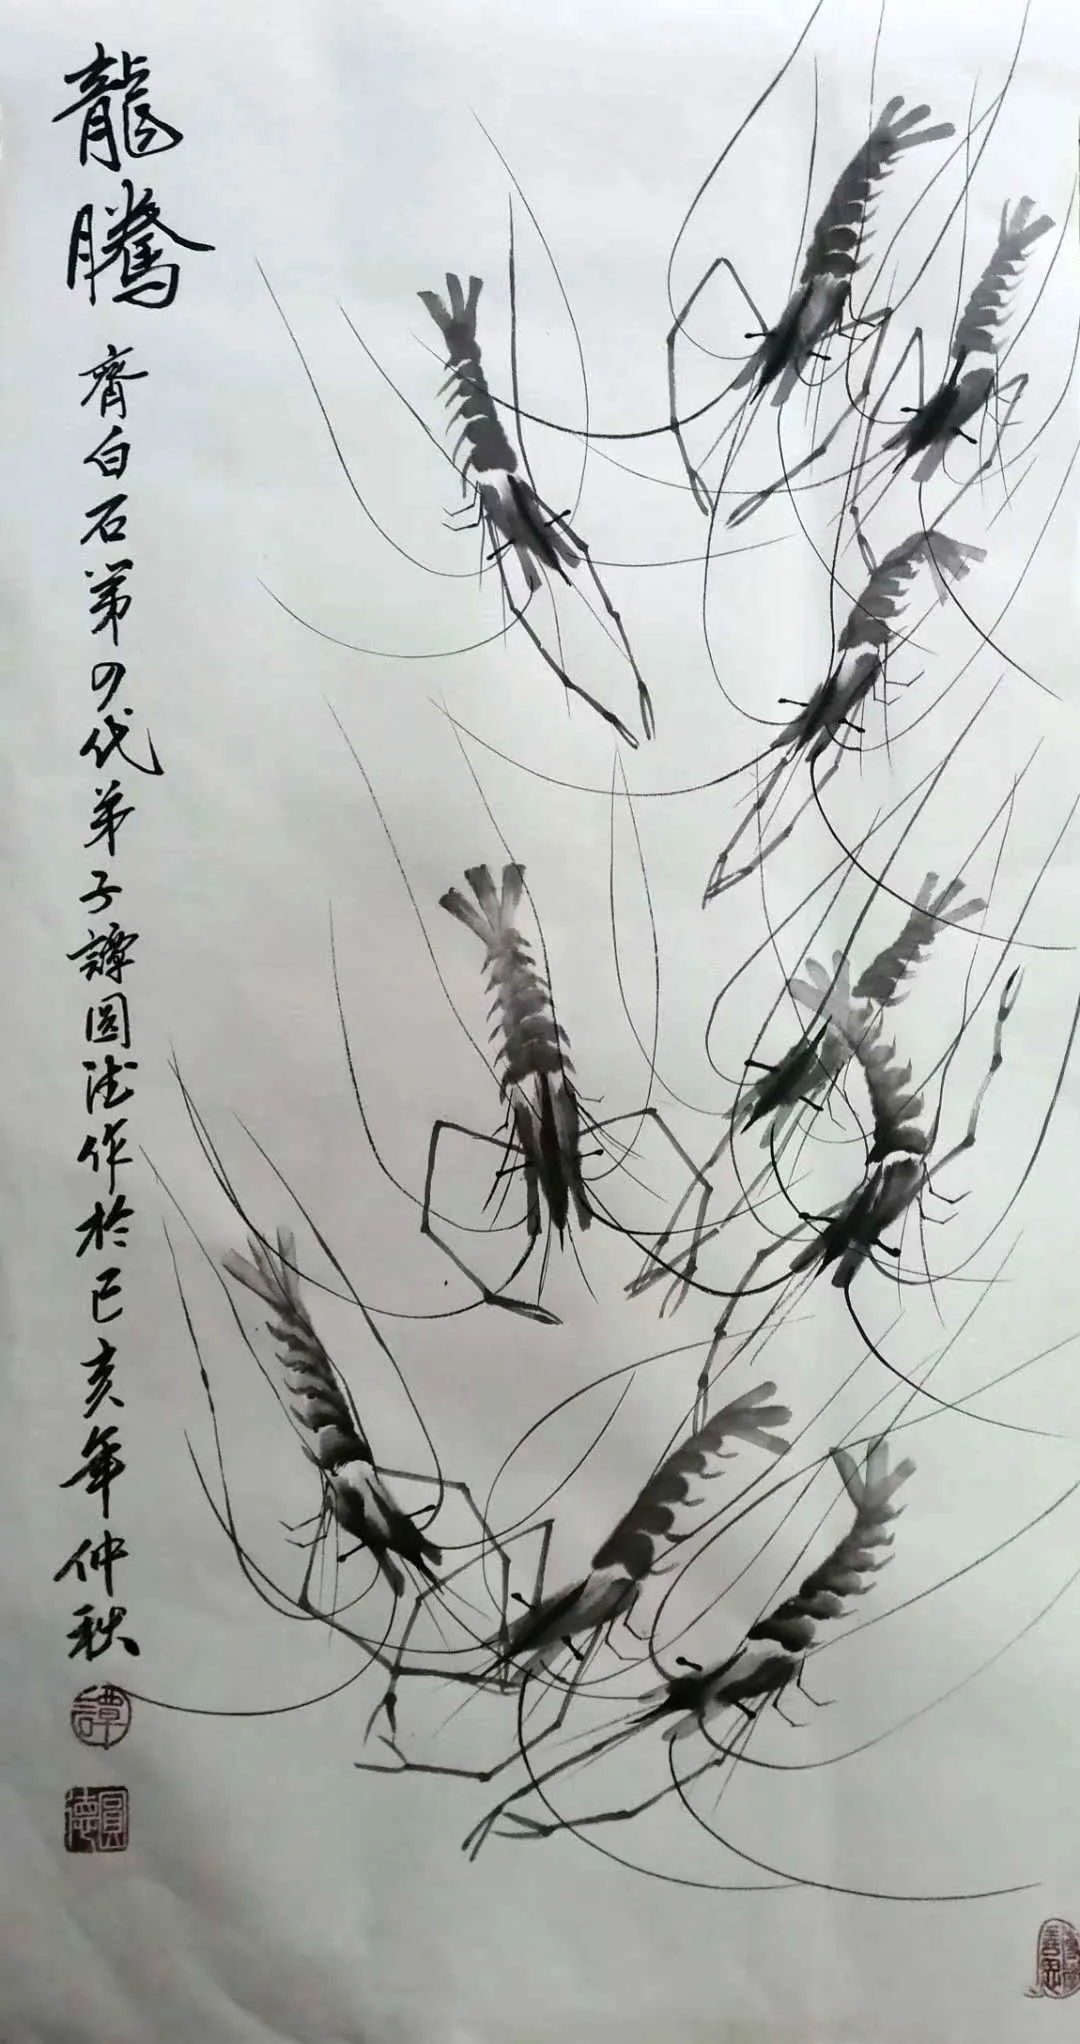 龍騰
齊白石第四代弟子譚圓德作於己亥年仲秋
譚
圓德